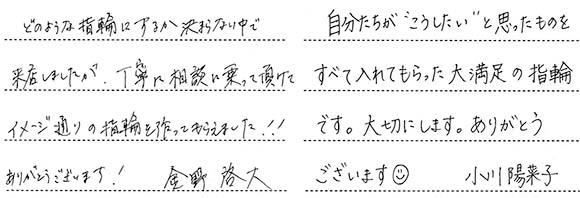 どのような指輪にするか決まらない中で
来店しましたが、丁寧に相談に乗って頂けて
イメージ通りの指輪を作ってもらえました!!
ありがとうございます! 金野 啓大
自分たちが"こうしたい"と思ったものを
すべて入れてもらった大満足の指輪
です。大切にします。ありがとう
ございます☺ 小川陽菜子